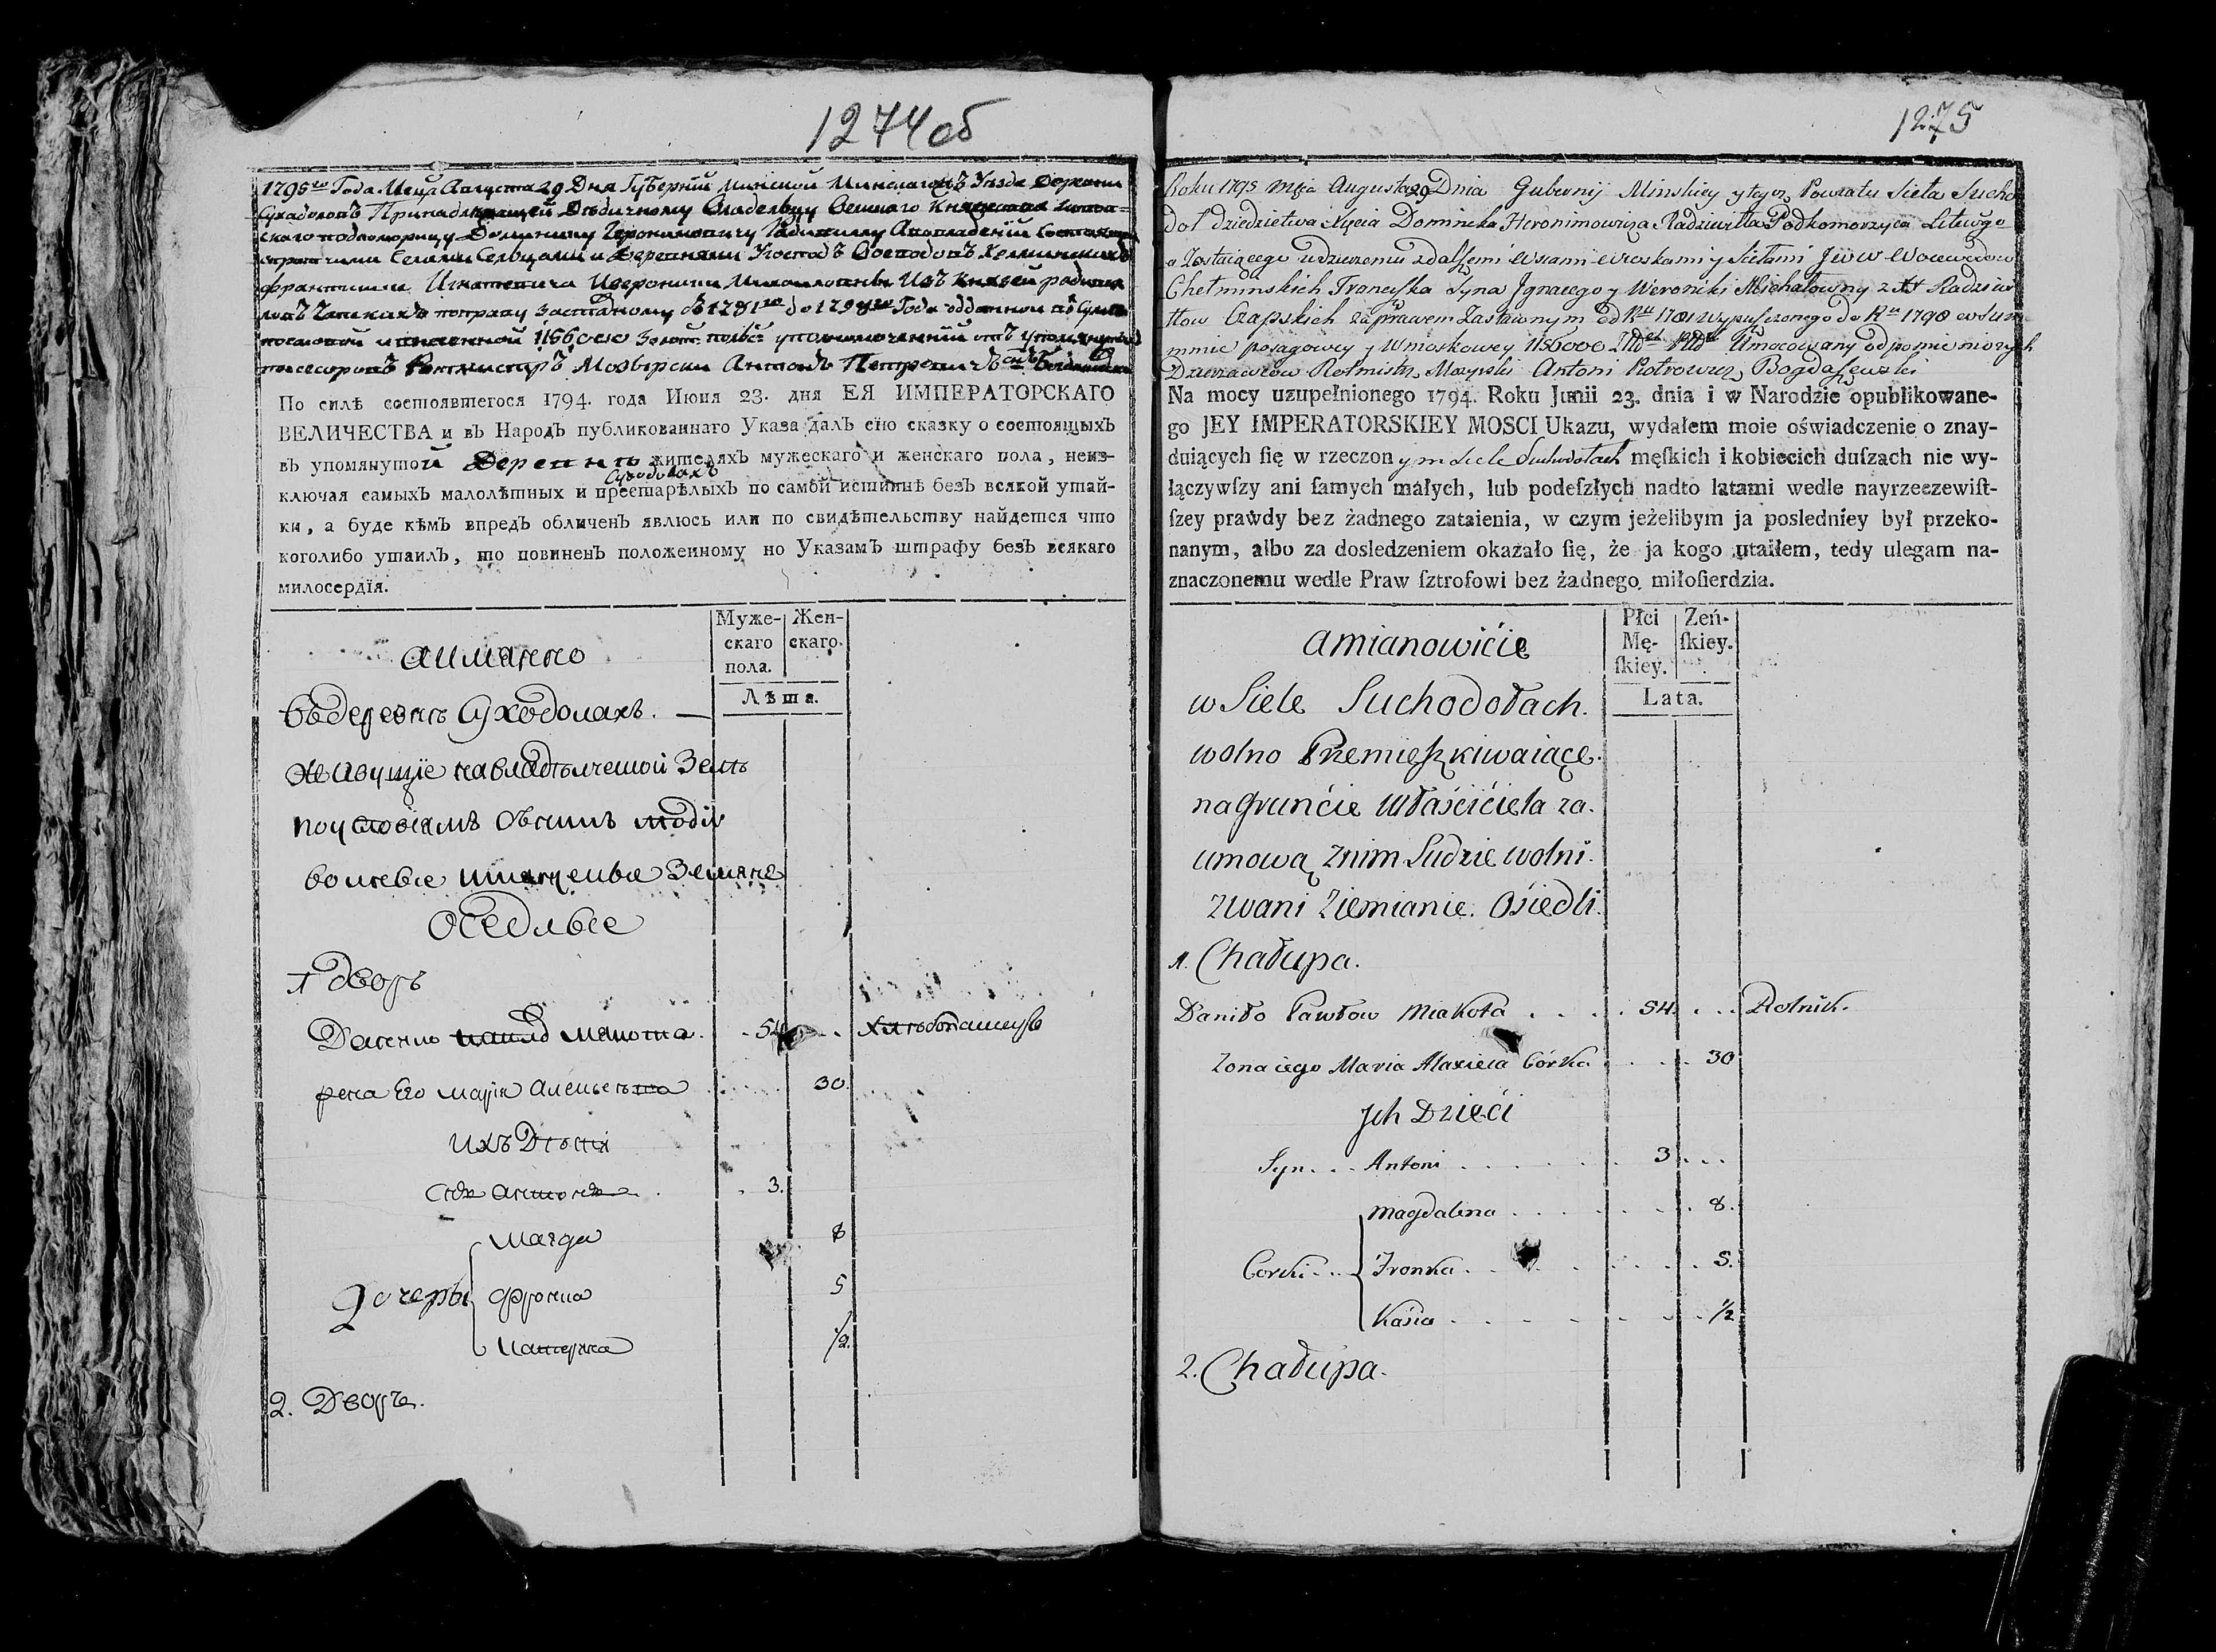 1274об
1795го Года Мѣца Августа 29 Дня Губерній Минской Минскагожъ Уѣзда Деревни
Суходоловъ Принадлежащей Дѣдичному Владельцу Великаго Княжества Литов=
скаго подкоморицу Доминику Героникмовичу Радивилу Авовладеній Состоящей
спрочими Селами Сельцами и Деревнями Угосподъ Воеводовъ Хелминскихъ
Франтишка Игнатевича Ивероники Михайловны Изъ Князей радиви
ловъ Чапскихъ поправу Заставному съ 1781го до 1798го Года отданной въ Сумѣ
посаговой 1156000 Золот: польс: уполномоченный отъ упомянутыхъ
посесоровъ Ротмистръ Мозырски Антонъ Петровичъ Богдашевски
По силѣ состоявшегося 1794. года Июня 23. дня ЕЯ ИМПЕРАТОРСКАГО
ВЕЛИЧЕСТВА и въ НародЪ публикованнаго Указа далЪ сїю сказку о состоящихЪ
въ упомянутой Деревнѣ жителяхЪ мужескаго и женскаго пола, неиз-
Суходолахъ
ключая самыхЪ малолѣтныхъ и престарѣлыхЪ по самой истиннѣ безЪ всякой утай-
ки, а буде кѣмЪ впредЪ обличенЪ явлюсь или по свидѣтельству найдется что
коголибо утаилЪ, то повиненЪ положенному по УказамЪ штрафу безЪ всякаго
милосердїя.
Муже-
скаго
пола.
Жен-
скаго.
Лѣта.
Аимянно
Въдеревнѣ Суходолахъ.
Живущїе навладѣлческой Землѣ
поусловїямъ Сънимъ люди
волные Земяне
Оседлые
1 дворъ
Данило Павлов Мякота . 54 . . Хлѣбопашецъ
жена Его Марїя Алексѣевна . . . 30.
ихъ Дѣти
Снъ Антонъ . . 3.
Дочеры
Магда 8
Фронка 5
Катерина 1/2.
2. Дворъ.
1275
Roku 1795 Mca Augusta 29 Dnia Gubernij Minskiey y tegoz Powiatu Sieła Sucho
doł dziedzictwa Xięcia Dominika Heronimowicza Radziwiłła Podkomorzyca Litewgo
a Zostaiącego udzierżeniu zdalszemi Wsiami Wioskami y Siełami Jww Woiewodow
Chełminskich Franciszka Syna Jgnacego y Weroniki Michałowny z Xt Radziwi
łłow Czapskich za prawem Zastawnym od Ru 1781 wypuszczonego do Ru 1798 w Sum
mmie posagowey y Wnioskowey 1156000 Umocowany od pomienionych
Dzierżawcow Rotmistrz Mozyrski Antoni Piotrowicz Bogdaszewski
Na mocy uzupełnionego 1794. Roku Junii 23. dnia i w Narodzie opublikowane-
go JEY IMPERATORSKIEY MOSCI Ukazu, wydałem moie oświadczenie o znay-
duiących ſię w rzeczonym Siele Suchodołach męſkich i kobiecich duſzach nie wy-
łączywſzy ani ſamych małych, lub podeſzłych nadto latami wedle nayrzeczewiſt-
ſzey prawdy bez żadnego zataienia, w czym jeżelibym ja posledniey był przeko-
nanym, albo za dosledzeniem okazało ſię, że ja kogo utaiłem, tedy ulegam na-
znaczonemu wedle Praw ſztrofowi bez żadnego miłoſierdzia.
Płci
Mę-
ſkiey.
Zeń-
ſkiey.
Lata.
a mianowićie
w Siele Suchodołach.
wolno Przemięszkiwaiące.
na Grunćie właśćićiela za.
umową znim Ludzie wolni.
zwani Ziemianie. Ośiedli.
1. Chałupa.
Daniło Pawłow Miakota . . . . 54. . . Rolnik.
Zona iego Maria Alaxieia Córka . . . . 30
Jch Dzieći
Syn . . . Antoni . . . . . . 3 . . .
Corki . . .
Magdalena . . . . . . 8.
Fronka . . . . . . 5.
Kaśia . . . . . . 1/2
2. Chałupa.